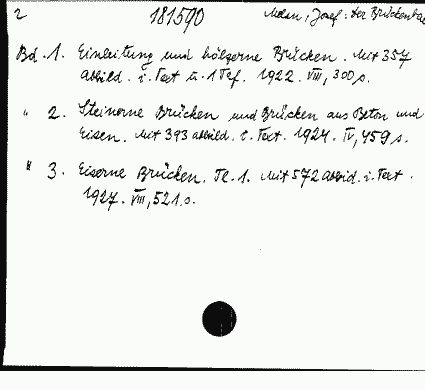 2 181590 Melan, Josef: Der Brückenba
Bd. 1. Einleitung und hölzerne Brücken. Mit 357
abbild. i. Text u. 1 Taf. 1922. VIII, 300 s.
" 2. Steinerne Brücken und Brücken aus Beton und
Eisen. Mit 393 abbild. i. Text. 1924. IV, 459 s.
" 3. Eiserne Brücken. Tl. 1. Mit 572 abbid. i. Text.
1927. VIII, 521 s.